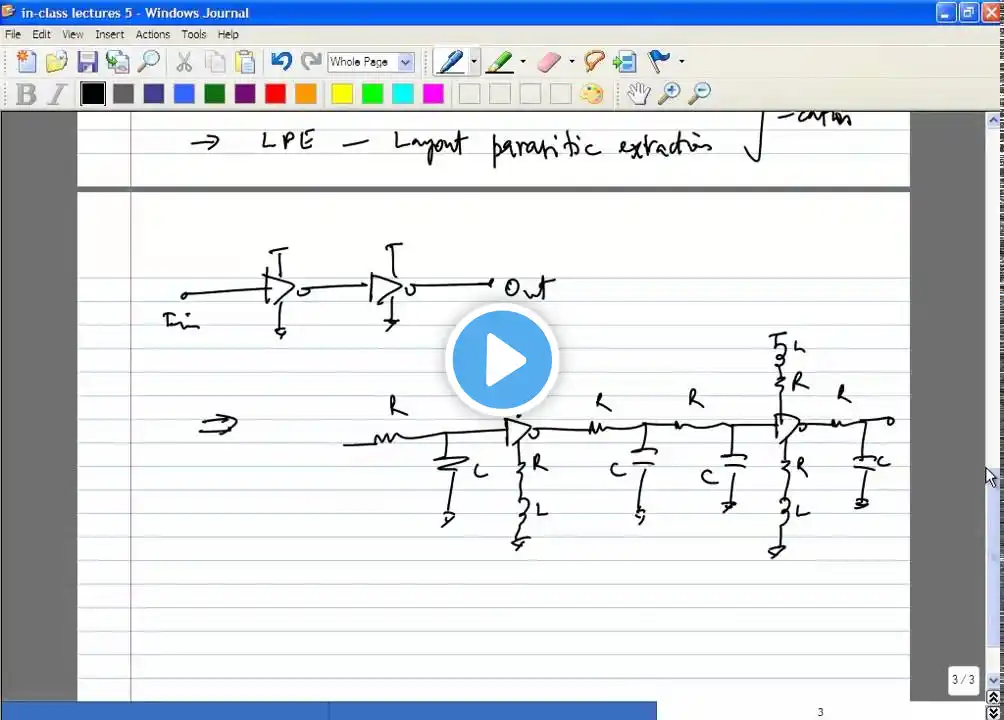 in-class lectures 5 - Windows Journal
File Edit View Insert Actions Tools Help
Whole Page
B I
→ LPE — Layout parasitic extraction
Out
In
L
R
R R R R
⇒
C R C C R C
L L
3 / 3
3